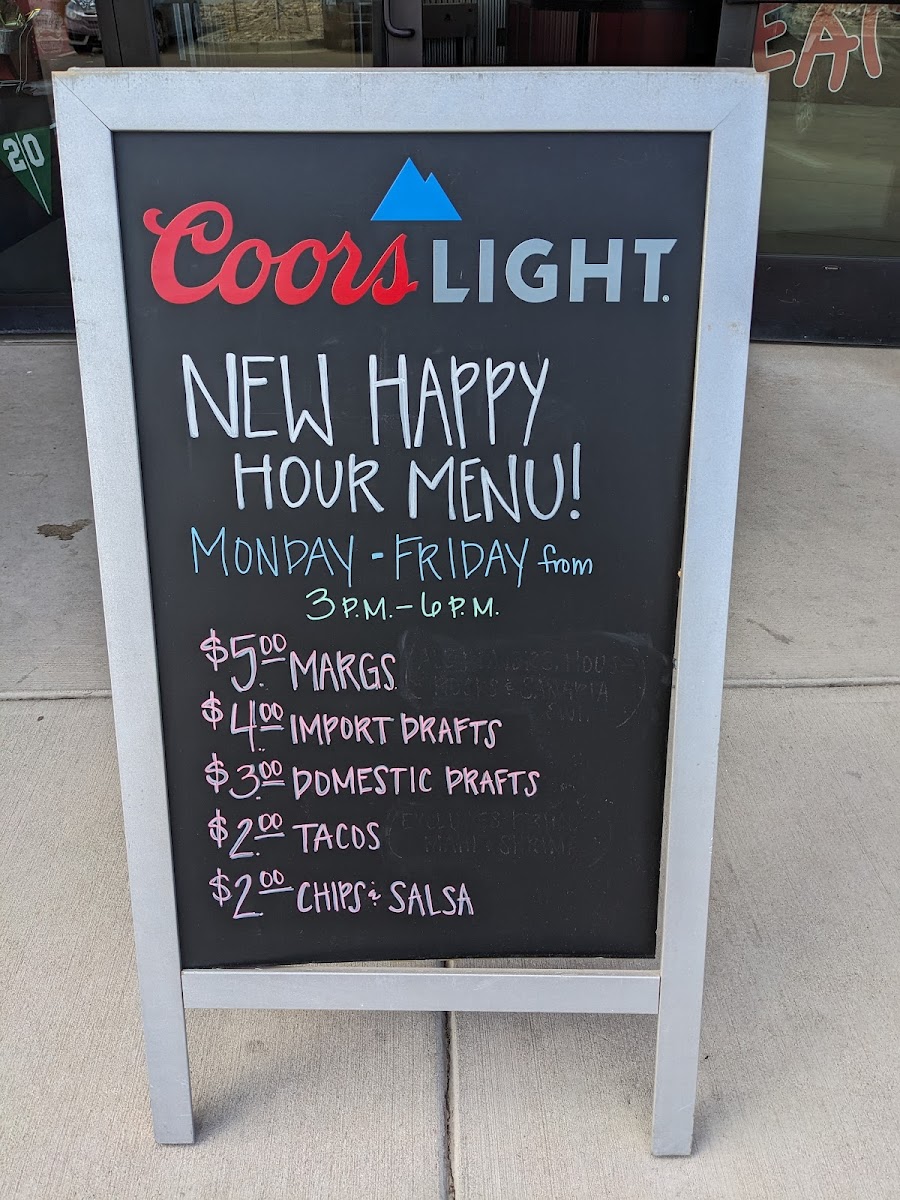 EAT
20
Coors LIGHT
NEW HAPPY
HOUR MENU!
MONDAY - FRIDAY from
3 P.M. - 6 P.M.
$5.00 MARGS.
$4.00 IMPORT DRAFTS
$3.00 DOMESTIC DRAFTS
$2.00 TACOS
$2.00 CHIPS & SALSA